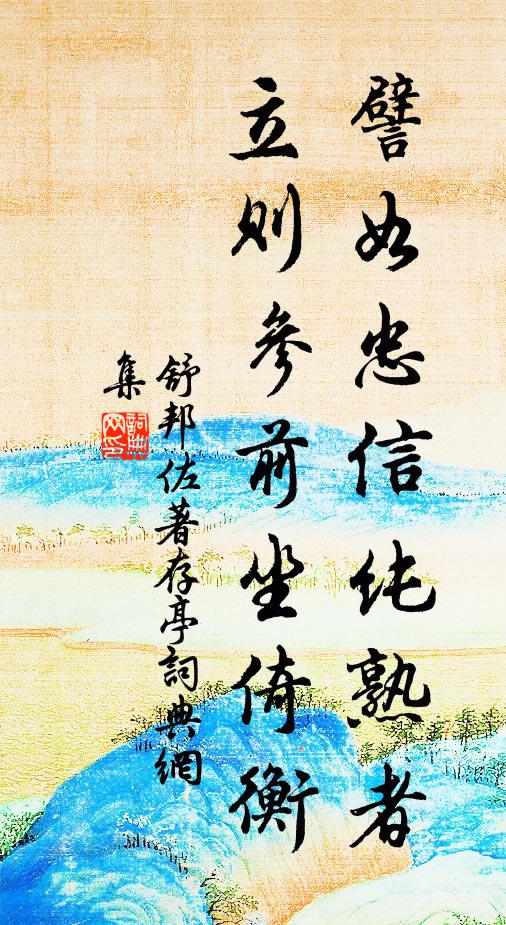 譬如忠信纯熟者
立则参前坐倚衡
舒邦佐著存亭詞典網
集
詞典網印